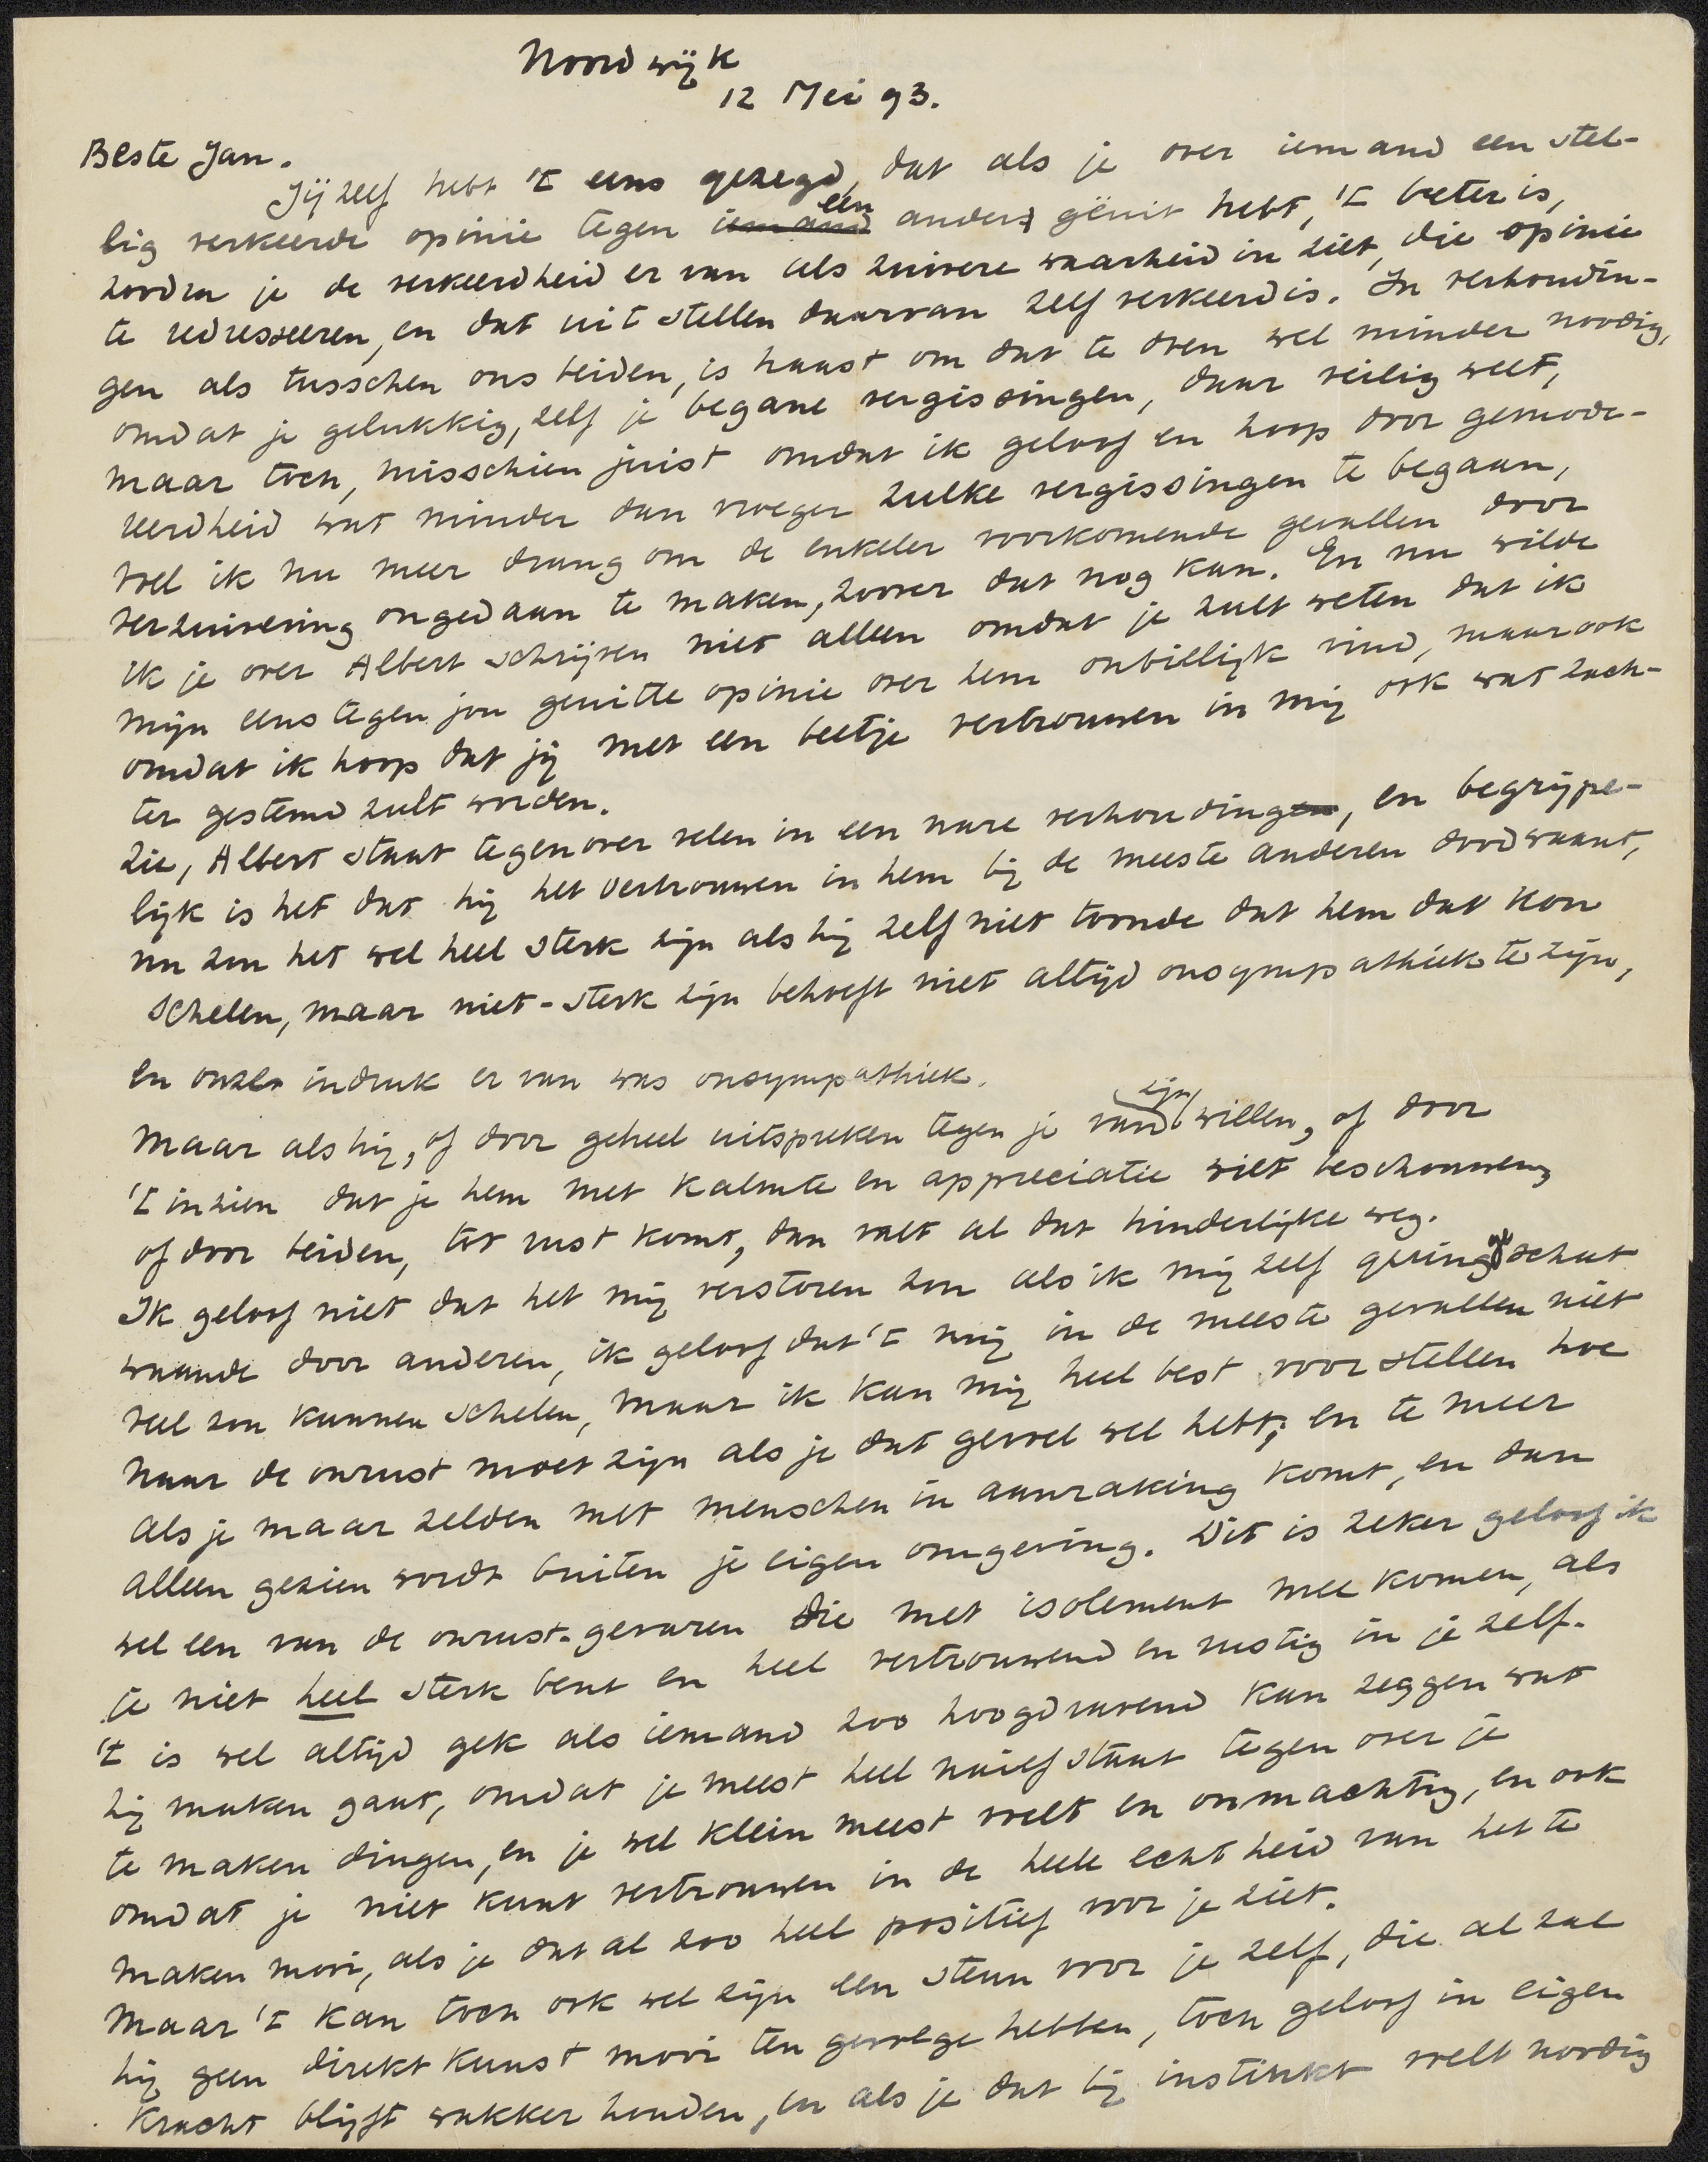 Noordwijk
12 Mei 93.
Beste Jan.
Jij zelf hebt 't eens gezegd, dat als je over iemand een stel-
lig verkeerde opinie tegen iemand een anders geuit hebt, 't beter is,
zoodra je de verkeerdheid er van als zuivere waarheid in ziet, die opinie
te redresseeren, en dat uit stellen daarvan zelf verkeerd is. In verhoudin-
gen als tusschen ons beiden, is haast om dat te doen wel minder noodig,
omdat je gelukkig, zelf je begane vergissingen, daar veilig weet,
maar toch, misschien juist omdat ik geloof en hoop door gemode-
reerdheid wat minder dan vroeger zulke vergissingen te begaan,
voel ik nu meer drang om de enkeler voorkomende gevallen door
verzuivering ongedaan te maken, zoover dat nog kan. En nu wilde
ik je over Albert schrijven niet alleen omdat je zult weten dat ik
mijn eens tegen jou geuitte opinie over hem onbillijk vind, maar ook
omdat ik hoop dat jij met een beetje vertrouwen in mij ook wat zach-
ter gestemd zult worden.
Zie, Albert staat tegenover velen in een nare verhoudingen, en begrijpe-
lijk is het dat hij het vertrouwen in hem bij de meeste anderen dood waant,
nu zou het wel heel sterk zijn als hij zelf niet toonde dat hem dat kon
schelen, maar niet-sterk zijn behoeft niet altijd onsympathiek te zijn,
en onze indruk er van was onsympathiek.
Maar als hij, of door geheel uitspreken tegen je van zijn willen, of door
't inzien dat je hem met kalmte en appreciatie wilt beschouwen,
of door beiden, tot rust komt, dan valt al dat hinderlijke weg.
Ik geloof niet dat het mij verstoren zou als ik mij zelf gering geschat
waande door anderen, ik geloof dat 't mij in de meeste gevallen niet
veel zou kunnen schelen, maar ik kan mij heel best voor stellen hoe
naar de onrust moet zijn als je dat gevoel wel hebt; en te meer
als je maar zelden met menschen in aanraking komt, en dan
alleen gezien wordt buiten je eigen omgeving. Dit is zeker geloof ik
wel een van de onrust-gevaren die met isolement mee komen, als
je niet heel sterk bent en heel vertrouwend en rustig in je zelf.
't is wel altijd gek als iemand zoo hoogdravend kan zeggen wat
hij maken gaat, omdat je meest heel naief staat tegen over je
te maken dingen, en je wel klein meest voelt en onmachtig, en ook
omdat je niet kunt vertrouwen in de heele echtheid van het te
maken mooi, als je dat al zoo heel positief voor je ziet.
Maar 't kan toch ook wel zijn een steun voor je zelf, die al zal
hij geen direkt kunst mooi ten gevolge hebben, toch geloof in eigen
kracht blijft wakker houden, en als je dat bij instinkt voelt noodig